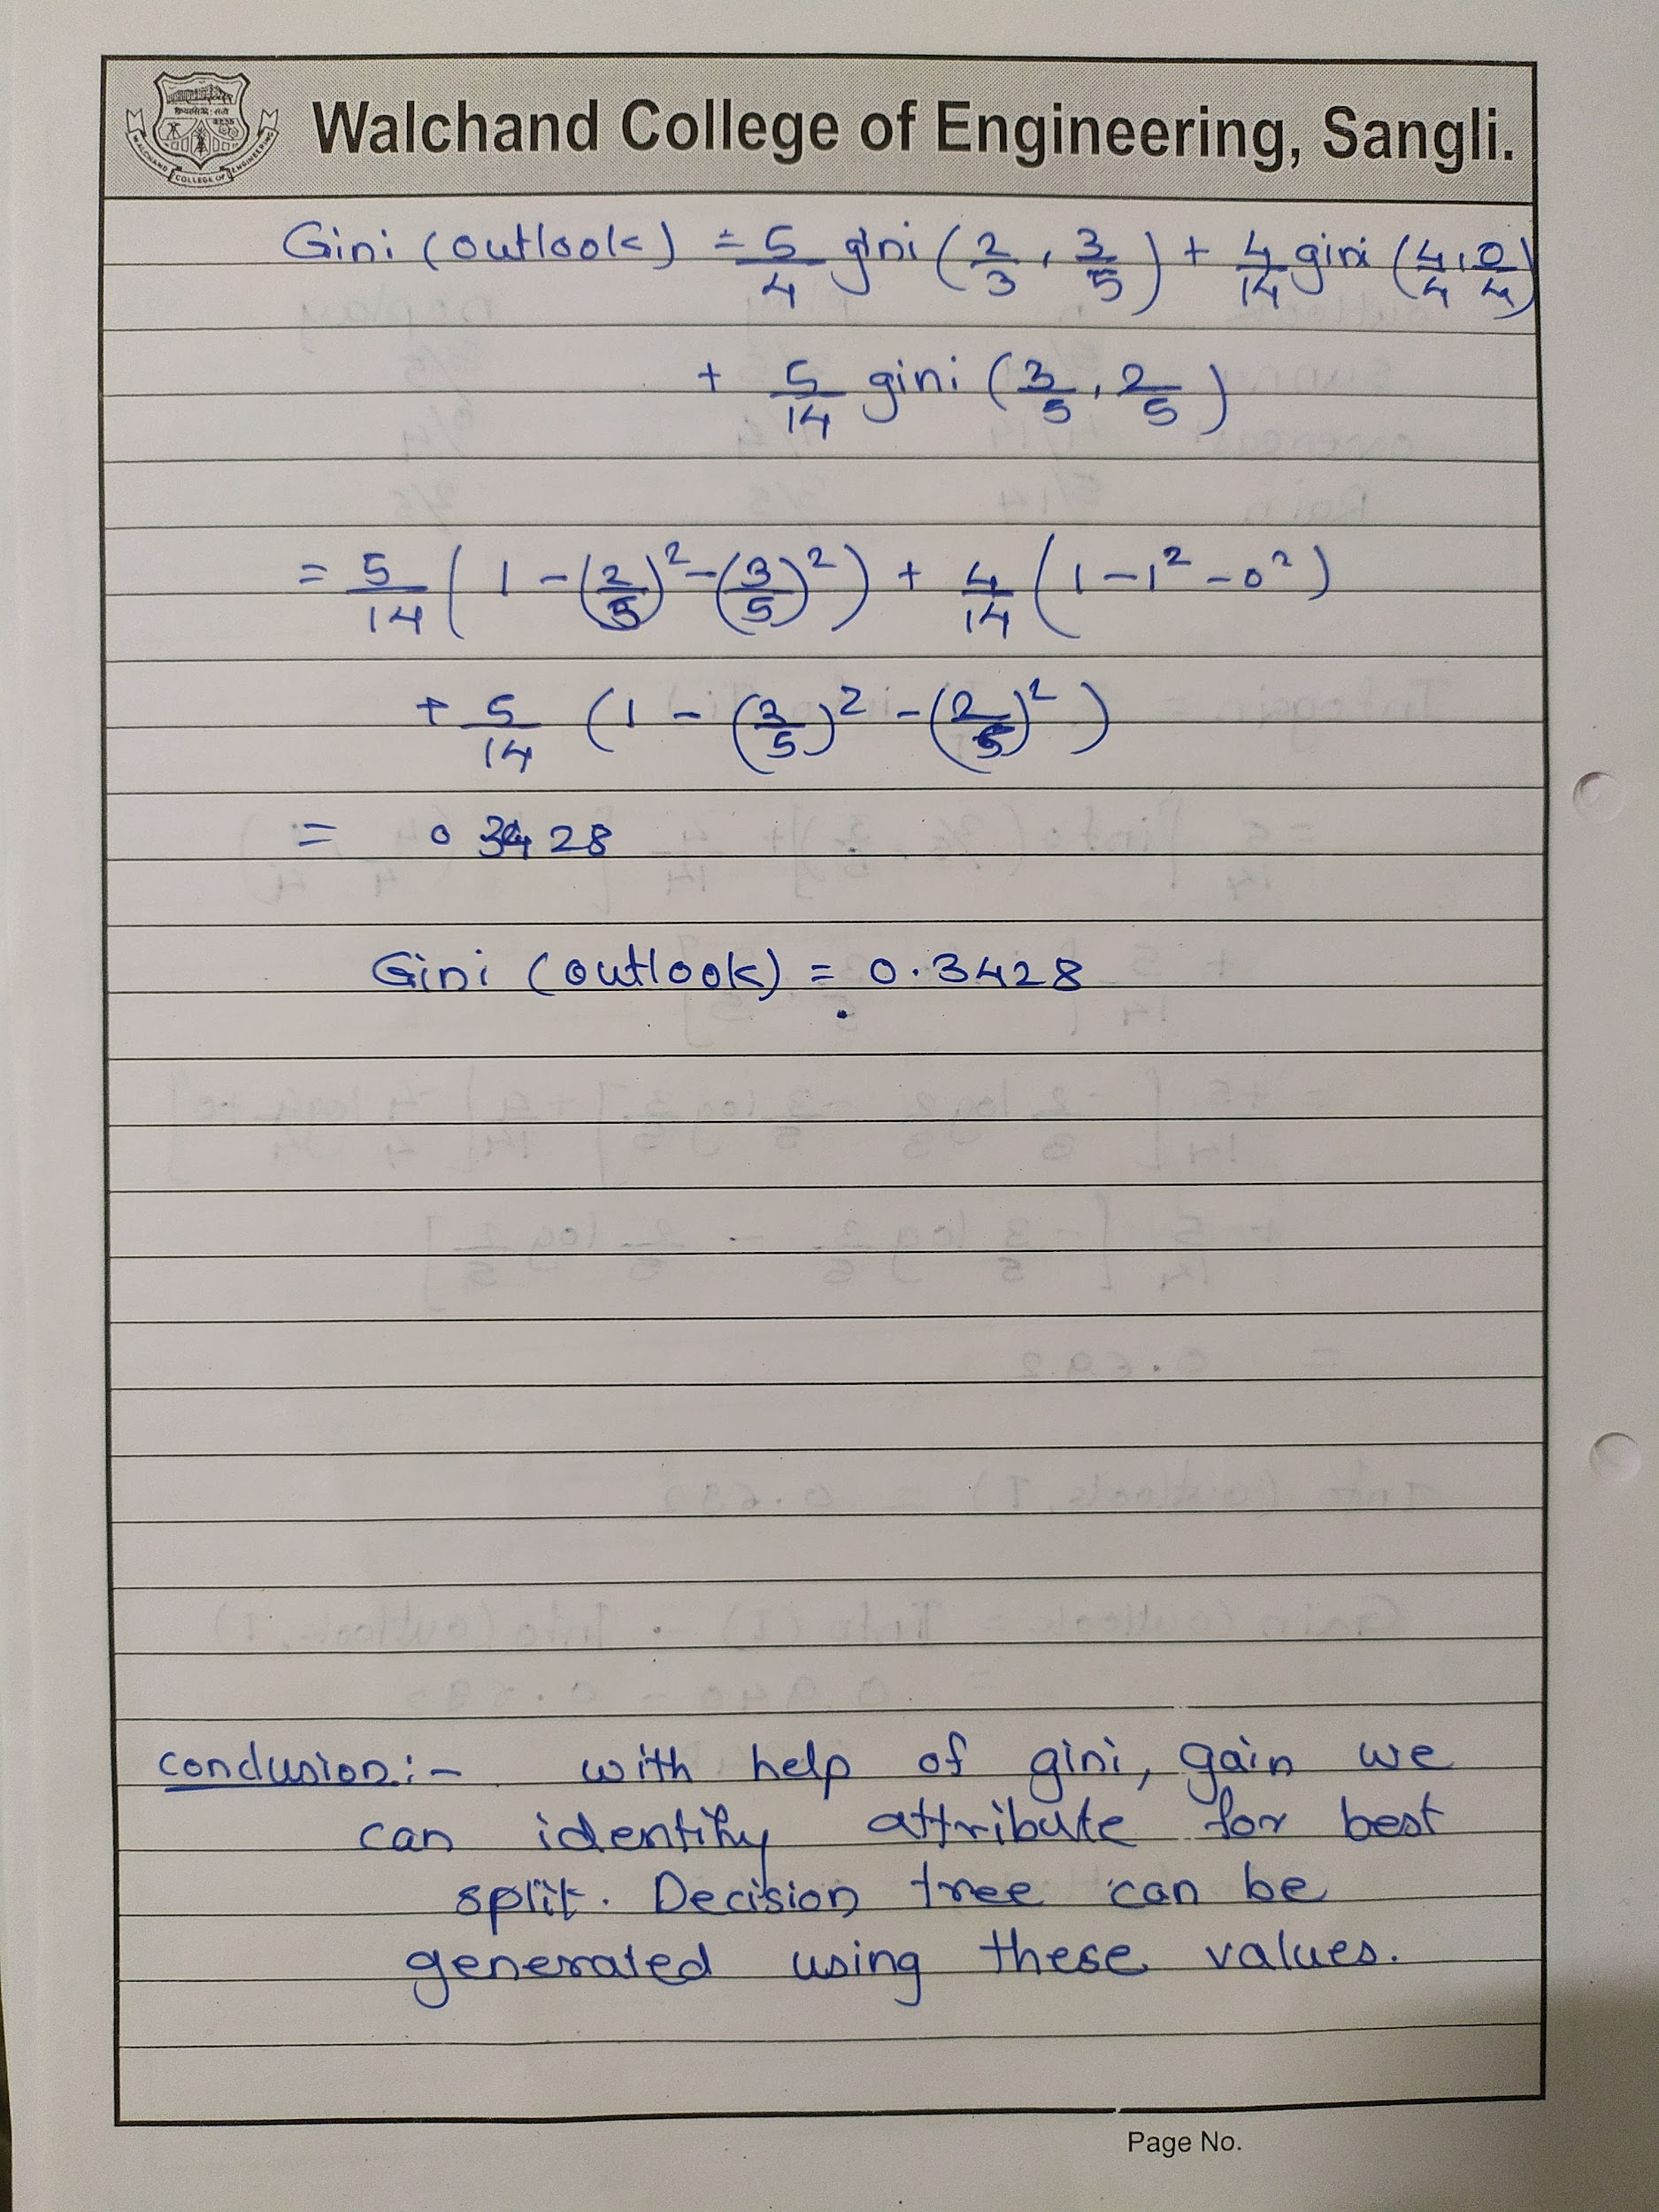 Walchand College of Engineering, Sangli.
WALCHAND COLLEGE OF ENGINEERING
Gini (outlook) = 5/4 gini (2/3, 3/5) + 4/14 gini (4/4, 0/4)
+ 5/14 gini (3/5, 2/5)
= 5/14 (1 - (2/5)² - (3/5)²) + 4/14 (1 - 1² - 0²)
+ 5/14 (1 - (3/5)² - (2/5)²)
= 0 3428
Gini (outlook) = 0.3428
conclusion:- with help of gini, gain we
can identify attribute for best
split. Decision tree can be
generated using these values.
Page No.